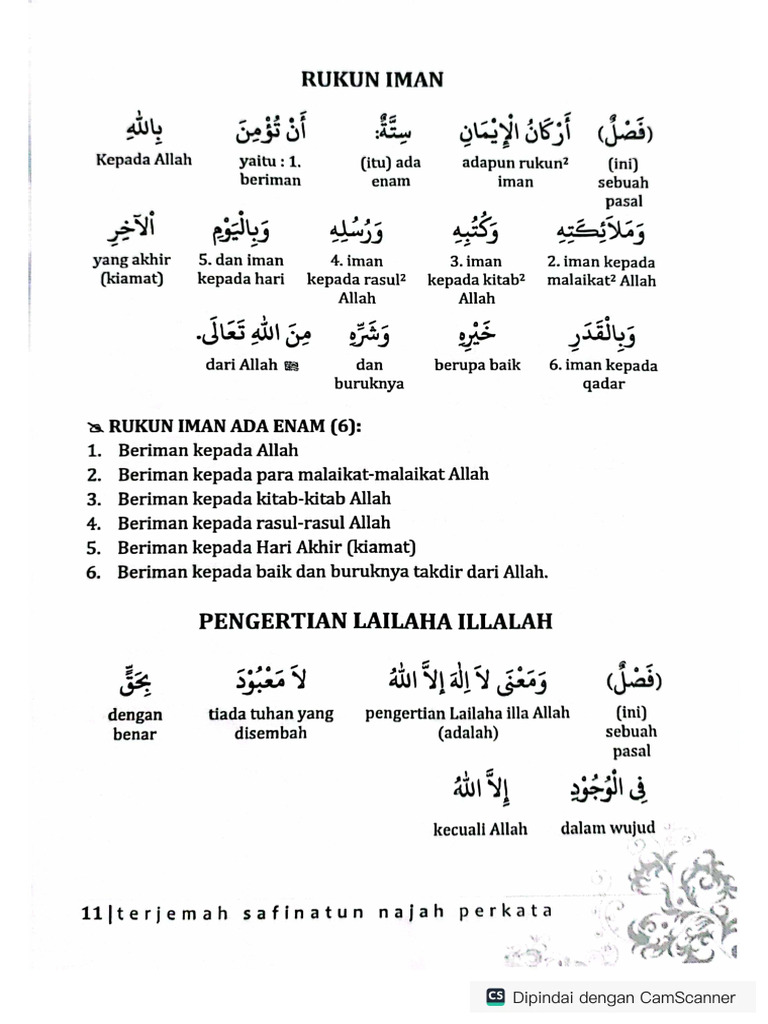 RUKUN IMAN
(فَصْلٌ) أَرْكَانُ الْإِيْمَانِ سِتَّةٌ: أَنْ تُؤْمِنَ بِاللهِ
(ini) sebuah pasal
adapun rukun² iman
(itu) ada enam
yaitu : 1. beriman
Kepada Allah
وَمَلَائِكَتِهِ وَكُتُبِهِ وَرُسُلِهِ وَبِالْيَوْمِ اْلآخِرِ
2. iman kepada malaikat² Allah
3. iman kepada kitab² Allah
4. iman kepada rasul² Allah
5. dan iman kepada hari
yang akhir (kiamat)
وَبِالْقَدَرِ خَيْرِهِ وَشَرِّهِ مِنَ اللهِ تَعَالَى.
6. iman kepada qadar
berupa baik
dan buruknya
dari Allah ﷻ
RUKUN IMAN ADA ENAM (6):
1. Beriman kepada Allah
2. Beriman kepada para malaikat-malaikat Allah
3. Beriman kepada kitab-kitab Allah
4. Beriman kepada rasul-rasul Allah
5. Beriman kepada Hari Akhir (kiamat)
6. Beriman kepada baik dan buruknya takdir dari Allah.
PENGERTIAN LAILAHA ILLALAH
(فَصْلٌ) وَمَعْنَى لَا اِلٰهَ إِلاَّ اللهُ لاَ مَعْبُوْدَ بِحَقٍّ
(ini) sebuah pasal
pengertian Lailaha illa Allah (adalah)
tiada tuhan yang disembah
dengan benar
فِى الْوُجُوْدِ إِلاَّ اللهُ
dalam wujud
kecuali Allah
11|terjemah safinatun najah perkata
CS Dipindai dengan CamScanner